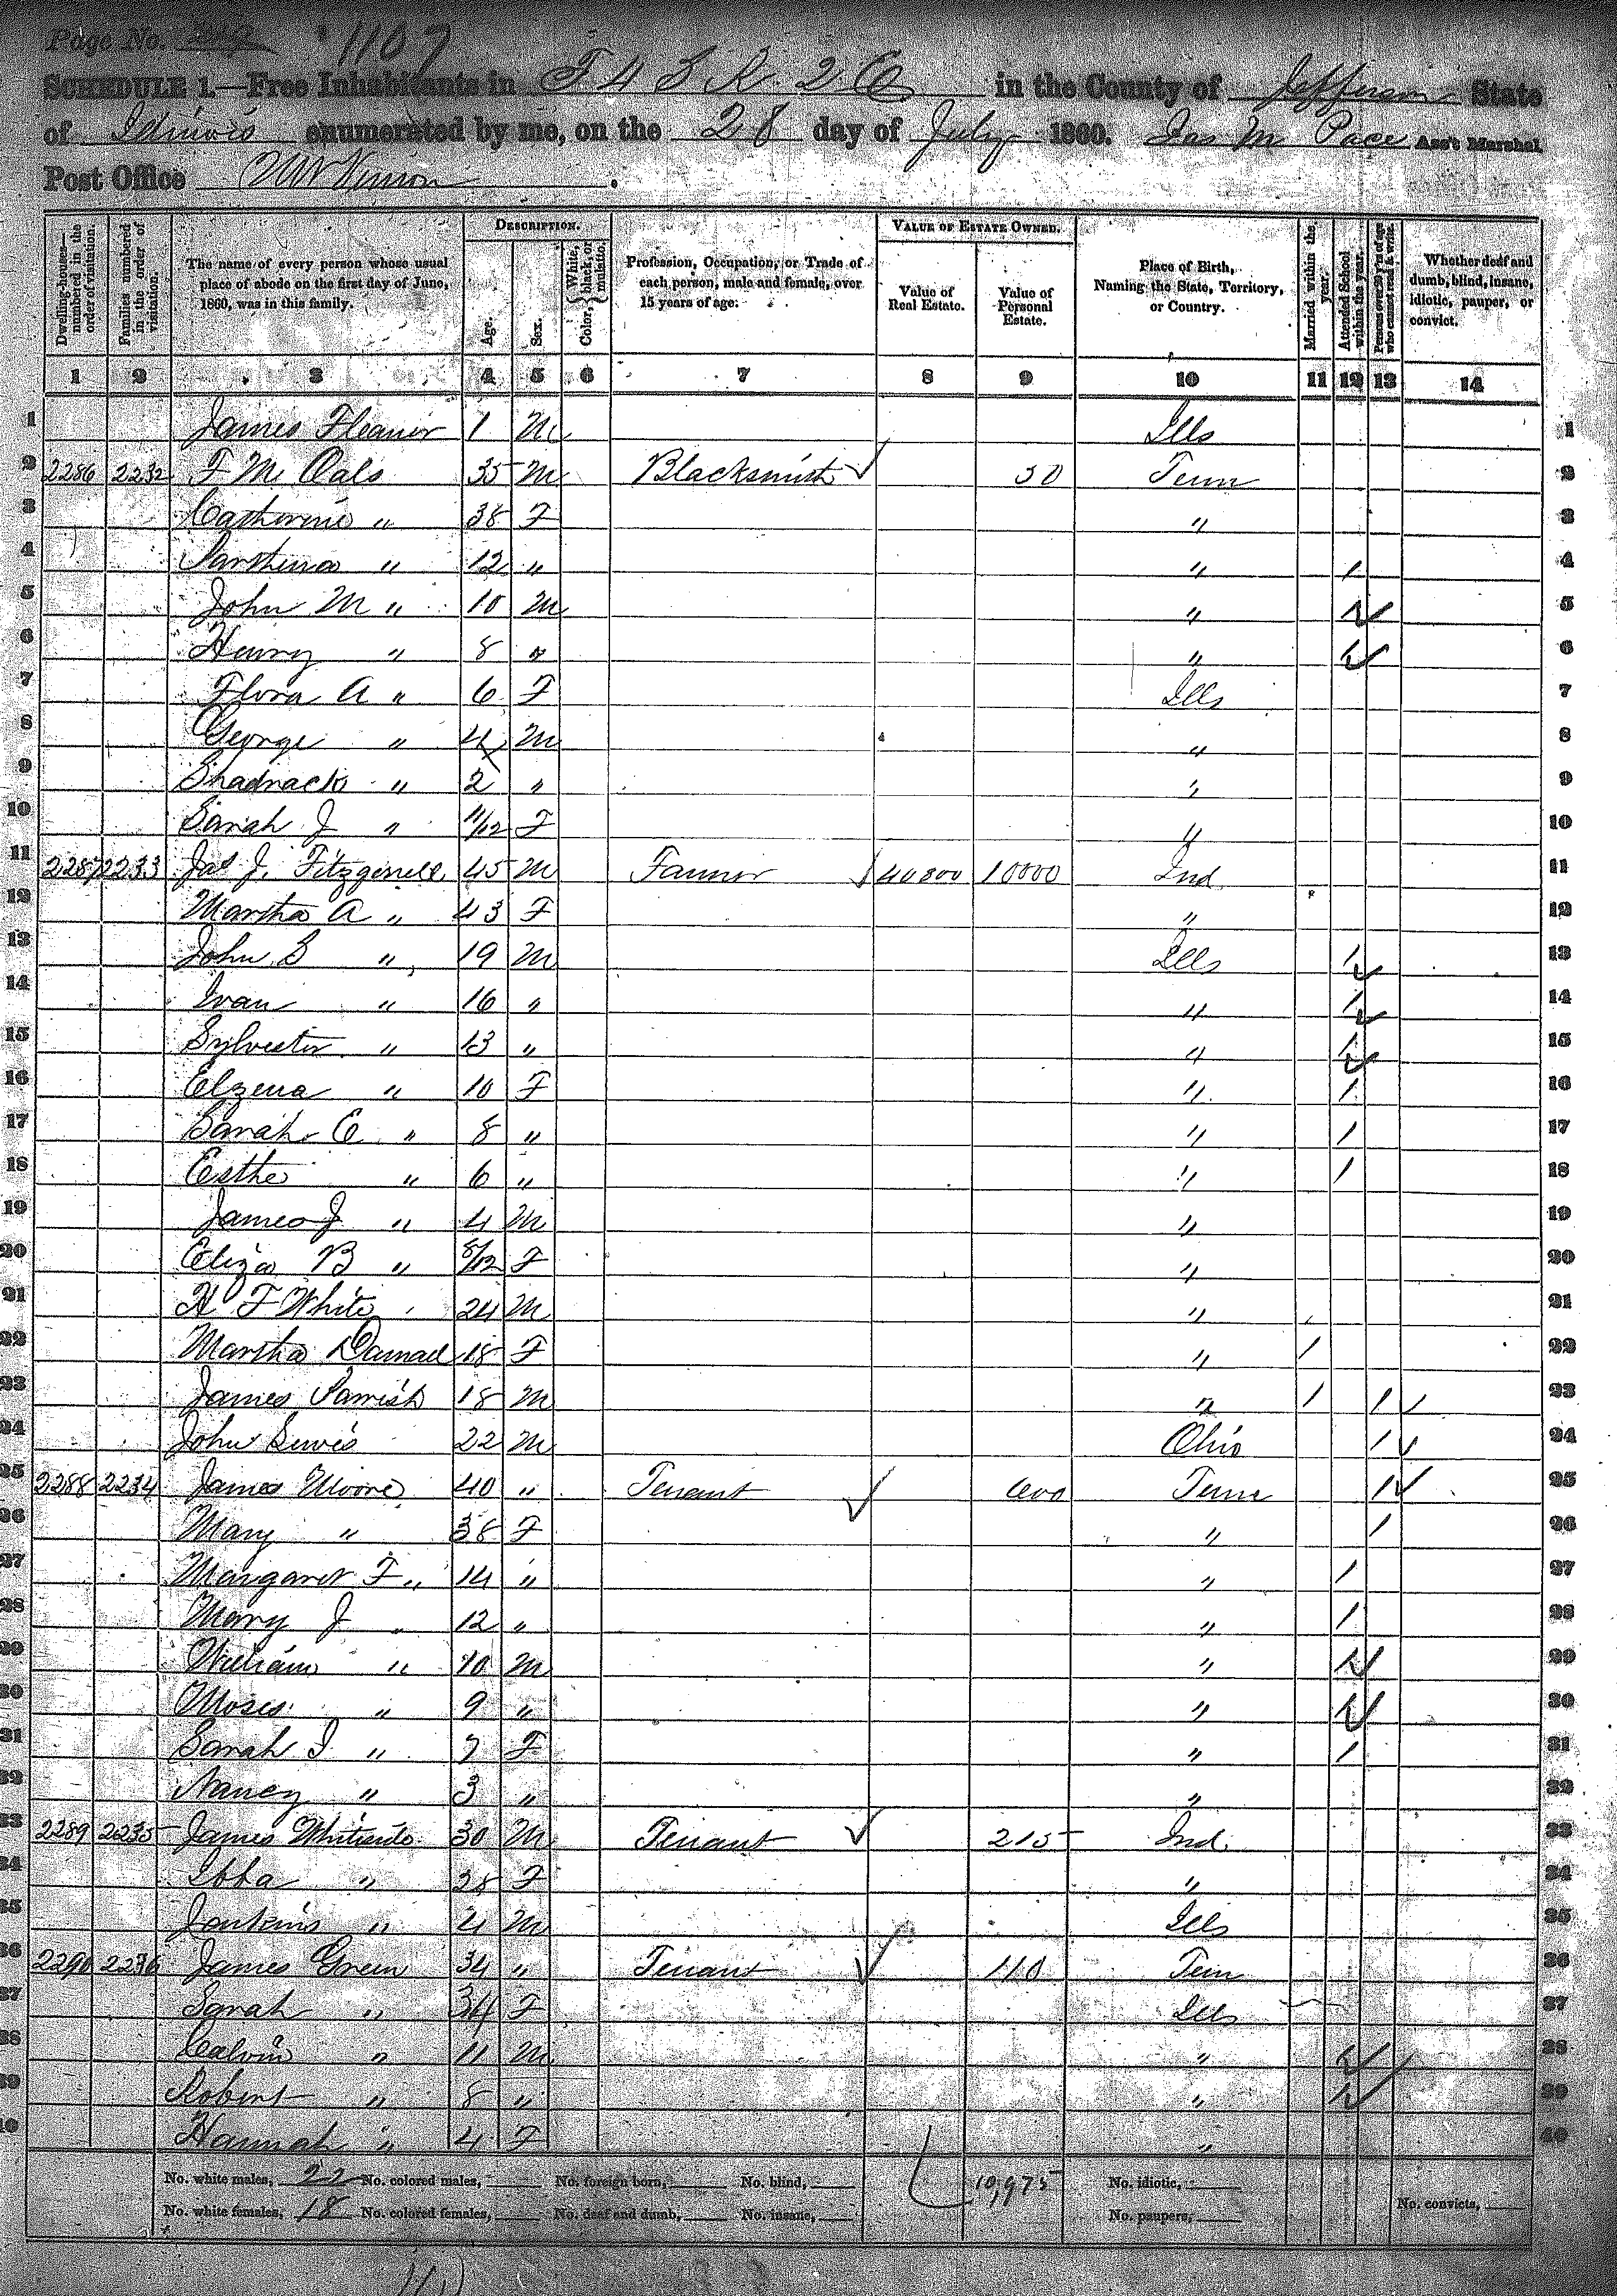 Page No. 1107
SCHEDULE 1.—Free Inhabitants in T 4 S R. 2 E. in the County of Jefferson State
of Illinois enumerated by me, on the 28 day of July 1860. Jas M Pace Ass't Marshal
Post Office Mt Vernon.
Dwelling-houses—numbered in the order of visitation.
Families numbered in the order of visitation.
The name of every person whose usual place of abode on the first day of June, 1860, was in this family.
DESCRIPTION.
Age.
Sex.
Color, { White, black, or mulatto.
Profession, Occupation, or Trade of each person, male and female, over 15 years of age.
VALUE OF ESTATE OWNED.
Value of Real Estate.
Value of Personal Estate.
Place of Birth, Naming the State, Territory, or Country.
Married within the year.
Attended School within the year.
Persons over 20 y'rs of age who cannot read & write.
Whether deaf and dumb, blind, insane, idiotic, pauper, or convict.
1 2 3 4 5 6 7 8 9 10 11 12 13 14
1 James Fleanor 1 M Ills 1
2 2286 2232 F M Oals 35 M Blacksmith 50 Tenn 2
3 Catherine " 38 F " 3
4 Parthena " 12 " " 1 4
5 John M " 10 M " 1 5
6 Henry " 8 " " 1 6
7 Flora A " 6 F Ills 7
8 George " 4 M " 8
9 Shadrack " 2 " " 9
10 Sarah J " 11/12 F " 10
11 2287 2233 Jas J. Fitzgerrell 45 M Farmer 40800 10000 Ind 11
12 Martha A " 43 F " 12
13 John S " 19 M Ills 1 13
14 Ivan " 16 " " 1 14
15 Sylvester " 13 " " 1 15
16 Elzena " 10 F " 1 16
17 Sarah E " 8 " " 1 17
18 Esther " 6 " " 1 18
19 James J " 4 M " 19
20 Eliza B " 8/12 F " 20
21 H F White 24 M " 21
22 Martha Darnael 18 F " 1 22
23 James Parrish 18 M " 1 1 23
24 John Lewis 22 M Ohio 1 24
25 2288 2234 James Moore 40 " Tenant 600 Tenn 1 25
26 Mary " 38 F " 1 26
27 Margaret F " 14 " " 1 27
28 Mary J " 12 " " 1 28
29 William " 10 M " 1 29
30 Moses " 9 " " 1 30
31 Sarah I " 7 F " 1 31
32 Nancy " 3 " " 32
33 2289 2235 James Whiteside 30 M Tenant 215 Ind. 33
34 Ibba " 28 F " 34
35 Jenkins " 4 M Ills 35
36 2290 2236 James Green 34 " Tenant 110 Tenn 36
37 Sarah " 34 F Ills 37
38 Calvin " 11 M " 1 38
39 Robert " 8 " " 1 39
40 Hannah " 4 F " 40
No. white males, 22 No. colored males, No. foreign born, No. blind, 10,975 No. idiotic,
No. white females, 18 No. colored females, No. deaf and dumb, No. insane, No. paupers, No. convicts,